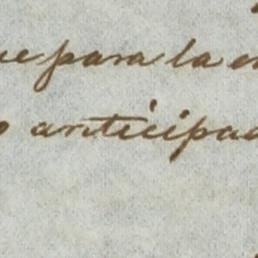 ue para la e
o anticipad